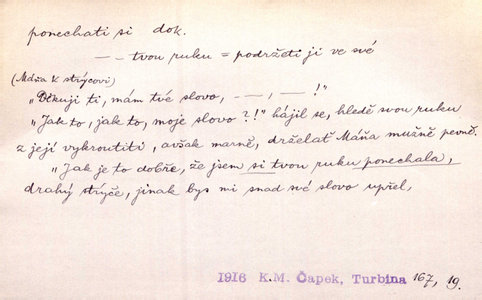 ponechati si dok.
— — tvou ruku = podržeti ji ve své
(Máňa k strýcovi)
„Děkuji ti, mám tvé slovo, — —, — !"
„Jak to, jak to, moje slovo?!" hájil se, hledě svou ruku
z její vykroutiti, avšak marně, držela Máňa mužně pevně.
„Jak je to dobře, že jsem si tvou ruku ponechala,
drahý strýče, jinak bys mi snad své slovo upřel,
1916 K.M. Čapek, Turbina 167, 19.